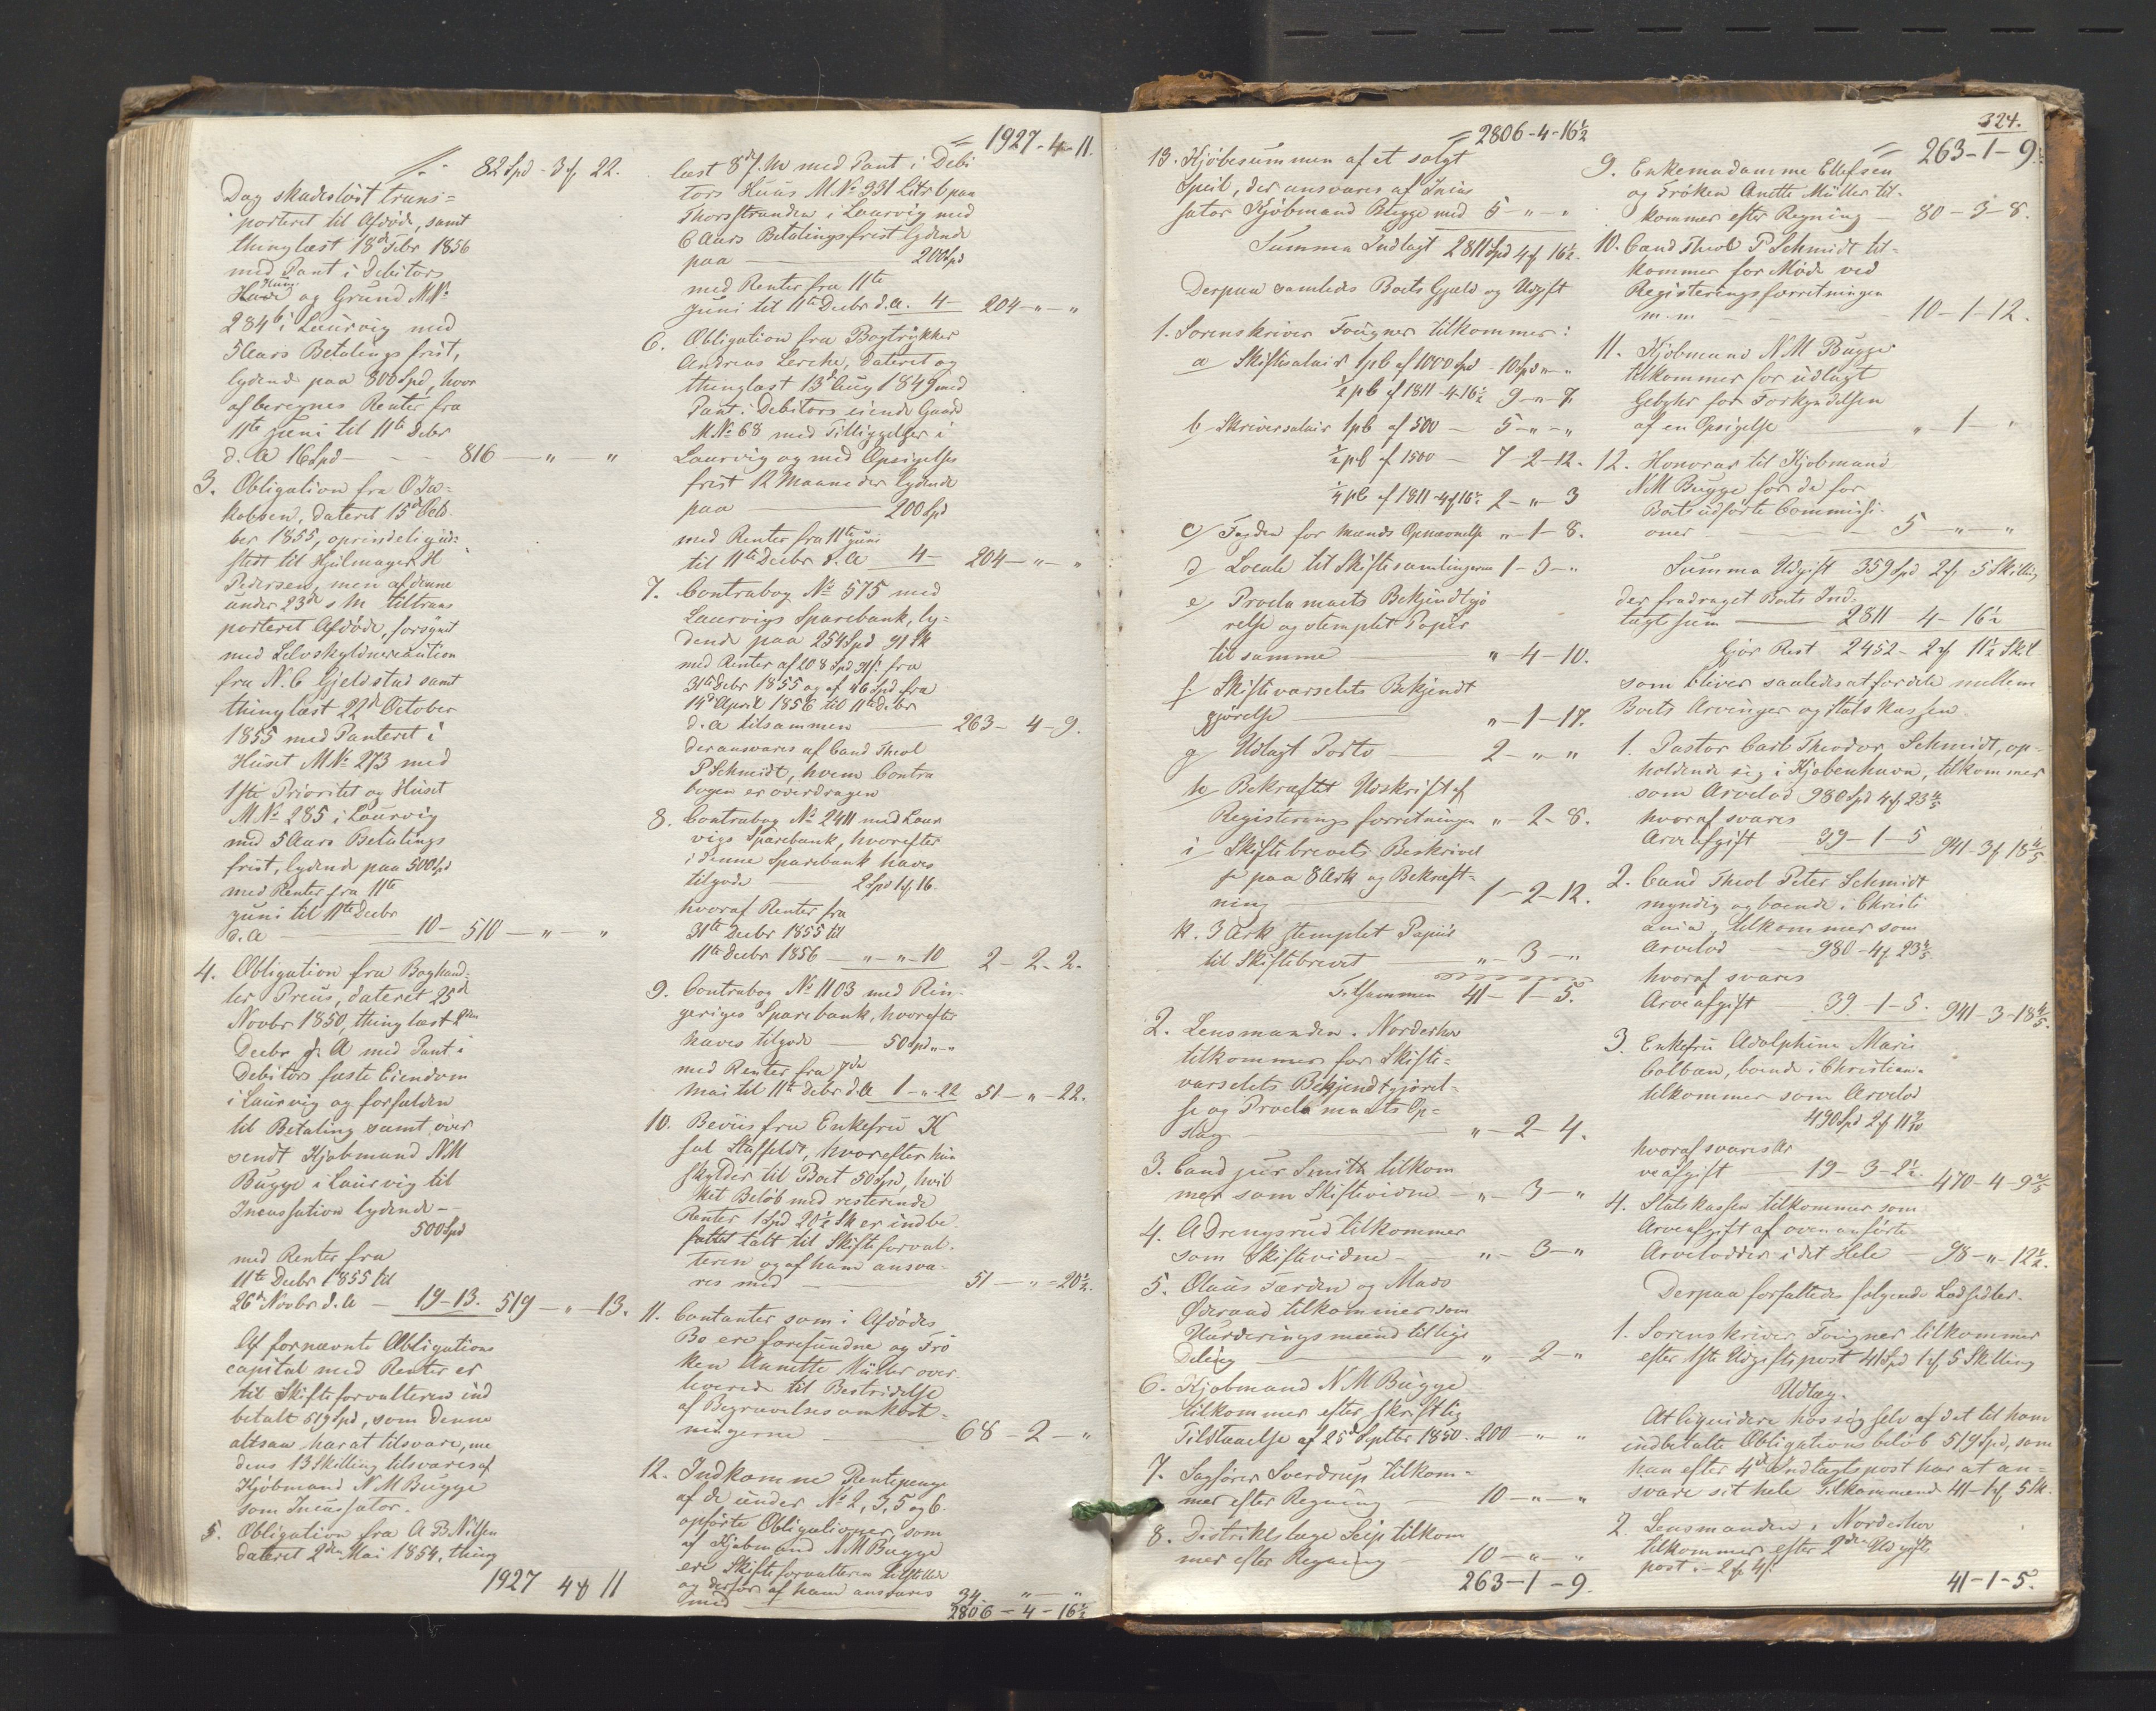 82 Spd - 3 f 22.
Dag skadesløst trans=
porteret til Afdøde, samt
thinglæst 18de Febr 1856
med Pant i Debitors
Huus og Grund MNo
284b i Laurvig med
5 Aars Betalings frist,
lydende paa 800 Spd, hvor
af beregnes Renter fra
11te Juni til 11te Debr
d. A 16 Spd - - - 816 - " - "
3. Obligation fra O Ja=
kobsen, dateret 15de Octo
ber 1855, oprindelig ud=
stedt til Hjulmager H
Pedersen, men af denne
under 23de s M. tiltrans
porteret Afdøde, forsynet
med Selvskyldnercaution
fra N. C Gjeldstad samt
thinglæst 22de October
1855 med Panteret i
Huset MNo 273 med
1ste Prioritet og Huset
MNo 285 i Laurvig
med 5 Aars Betalings
frist, lydende paa 500 Spd
med Renter fra 11te
Juni til 11te Decbr
d. A - 10 - 510 - " - "
4. Obligation fra Boghand=
ler Preus, dateret 25de
Novbr 1850, thinglæst 2den
Decbr s. A med Pant i
Debitors faste Eiendom
i Laurvig og forfalden
til Betaling samt over
sendt Kjøbmand N M
Bugge i Laurvig til
Incassation lydende -
500 Spd
med Renter fra
11te Decbr 1855 til
26de Novbr d. A - 19-13. 519 - " - 13.
Af fornævnte Obligations
capital med Renter er
til Skifteforvalteren ind
betalt 519 Spd, som denne
altsaa har at tilsvare, me
dens 13 Skilling tilsvares af
Kjøbmand N M Bugge
som Incassator.
5. Obligation fra A B Nilsen
dateret 2den Mai 1854, thing
1927 4 f 11
= 1927 - 4 - 11.
læst 8de s. M med Pant i Debi
tors Huus MNo 331 Litr b paa
Thorsstranden i Laurvig med
6 Aars Betalingsfrist lydende
paa - 200 Spd
med Renter fra 11te
Juni til 11te Decbr d. A. 4 - 204 - " - "
6. Obligation fra Bogtrykker
Andreas Lerche, dateret og
thinglæst 13de Aug 1849 med
Pant i Debitors eiende Gaard
MNo 68 med Tilliggelser i
Laurvig og med Opsigelses
frist 12 Maaneder lydende
paa - 200 Spd
med Renter fra 11te Juni
til 11te Decbr d. A 4 - 204 - " - "
7. Contrabog No 575 med
Laurvigs Sparebank, ly=
dende paa 254 Spd 91 Sk
med Renter af 208 Spd 91 f. fra
31te Debr 1855 og af 46 Spd fra
14de April 1856 til 11te Debr
d. A tilsammen - 263 - 4 - 9.
der ansvares af Cand Theol
P Schmidt, hvem Contra
bogen er overdragen
8. Contrabog No 2411 med Laur
vigs Sparebank, hvorefter
i denne Sparebank haves
tilgode - 2 Spd 1 f 16.
hvoraf Renter fra
31te Decbr 1855 til
11te Decbr 1856 - " - " - 10 2 - 2 - 2.
9. Contrabog No 1103 med Rin=
geriges Sparebank, hvorefter
haves tilgode - 50 Spd " - "
med Renter fra 7de
Mai til 11te Debr d. A 1 - " - 22 51 - " - 22.
10. Beviis fra Enkefru K
sal Staffeldt, hvorefter hun
skylder til Boet 50 Spd, hvil
ket Beløb med resterende
Renter 1 Spd 20½ Sk er indbe
talt til Skifteforval=
teren og af ham ansva=
res med - 51 - " - 20½.
11. Contanter som i Afdødes
Bo ere forefundne og Frø
ken Annette Müller over
leverede til Bestridelse
af Begravelsesomkost=
ningerne - 68 - 2 - "
12. Indkomne Rentepenge
af de under No 2, 3, 5 og 6.
opførte Obligationer, som
af Kjøbmand N M Bugge
ere Skifteforvalteren tilstillede
og derfor af ham ansvares
med - 34 - " - "
2806 - 4 - 16½
= 2806 - 4 - 16½
13. Kjøbesummen af et solgt
Speil, der ansvares af Incas
sator Kjøbmand Bugge med 5 - " - "
Summa Indtægt 2811 Spd 4 f 16½.
Derpaa samledes Boets Gjæld og Udgift
1. Sorenskriver Fougner tilkommer:
a/ Skiftesalair 1 pC af 1000 Spd - 10 Spd " - "
½ pC af 1811 - 4 - 16½ 9 - " - 7.
b/ Skriversalair 1 pC af 500 - 5 - " - "
½ pC af 1500 - 7 - 2 - 12.
¼ pC af 1811 - 4 f 16½ 2 - " - 3
c/ Fogden for Mænds Opnævnelse " - 1 - 8.
d/ Locale til Skiftesamlingerne 1 - 3 - "
e/ Proclamaets Bekjendtgjø
relse og stemplet Papir
til samme - " - 4 - 10.
f. Skiftevarselets Bekjendt
gjørelse - " - 1 - 17.
g/ Udlagt Porto - 2 - " - "
h/ Bekræftet Udskrift af
Registeringsforretningen " - 2 - 8.
i/ Skiftebrevets Beskrivel
se paa 8 Ark og Bekræft=
ning - 1 - 2 - 12.
k. 3 Ark stemplet Papiir
til Skiftebrevet - " - 3 - "
Tilsammen 41 - 1 - 5.
2. Lensmanden i Norderhov
tilkommer for Skifte=
varselets Bekjendtgjørel=
se og Proclamaets Op=
slag - " - 2 - 4.
3. Cand jur Smith tilkom
mer som Skiftevidne - " - 3 - "
4. A Drengsrud tilkommer
som Skiftevidne - " - 3 - "
5. Olaus Færden og Mads
Øderaad tilkommer som
Vurderingsmænd tillige
Deling - " 2 - "
6. Kjøbmand N M Bugge
tilkommer efter skriftlig
Tilstaaelse af 25de Septbr 1850 - 200 - " - "
7. Sagfører Sverdrup tilkom=
mer efter Regning - 10 - " - "
8. Distriktslæge Seip tilkom
mer efter Regning - 10 - " - "
263 - 1 - 9.
324.
= 263 - 1 - 9.
9. Enkemadamme Ellefsen
og Frøken Anette Müller til=
kommer efter Regning - 80 - 3 - 8.
10. Cand Theol P Schmidt til=
kommer for Møde ved
Registeringsforretningen
m. m - 10 - 1 - 12.
11. Kjøbmand N M Bugge
tilkommer for udlagt
Gebyhr for Forkyndelsen
af en Opsigelse " - 1 - "
12. Honorar til Kjøbmand
N M Bugge for de for
Boet udførte Commissi=
oner - 5 - " - "
Summa Udgift 359 Spd 2 f 5 Skilling
der fradraget Boets Ind=
tægtssum - 2811 - 4 - 16½
Gjør Rest 2452 - 2 f 11½ Skil
som bliver saaledes at fordele mellem
Boets Arvinger og Statskassen
1. Pastor Carl Theodor Schmidt, op=
holdende sig i Kjøbenhavn, tilkommer
som Arvelod 980 Spd 4 f 23⅘
hvoraf svares
Arveafgift - 39 - 1 - 5 941 - 3 f 18⅘.
2. Cand Theol Peter Schmidt
myndig og boende i Christi
ania, tilkommer som
Arvelod - 980 - 4 f 23⅘
hvoraf svares
Arveafgift - 39 - 1 - 5. 941 - 3 - 18⅘.
3. Enkefru Adolphine Marie
Colban, boende i Christiania
tilkommer som Arvelod
490 Spd 2 f 11
hvoraf svares Ar
veafgift - 19 - 3 - 2½. 470 - 4 - 9⅖
4. Statskassen tilkommer som
Arveafgift af ovenanførte
Arvelodder i det Hele - 98 - " - 12½.
Derpaa forfattedes følgende Lodsedler.
1. Sorenskriver Fougner tilkommer
efter 1ste Udgiftspost 41 Spd 1 f. 5 Skilling
Udlæg.
At liquidere hos sig selv af det til ham
indbetalte Obligationsbeløb 519 Spd, som
han efter 4de Indtægtspost har at an=
svare sit hele Tilkommende 41 - 1 f 5 Sk.
2. Lensmanden i Norderhov
tilkommer efter 2den Udgifts
post. - 2 f 4 s.
41 - 1 - 5.